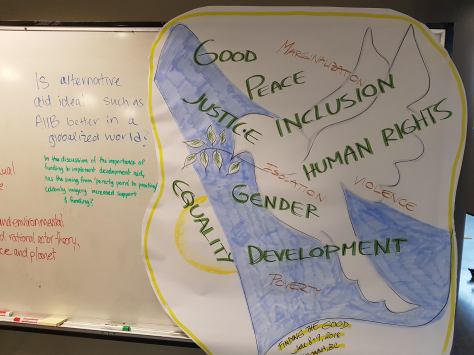 Is alternative
aid idea such as
AIIB better in a
globalized world?
In the discussion of the importance of
funding to implement development aid,
has the swing from 'poverty porn' to
increased support
& funding?
and environmental
rational actor theory,
and planet
GOOD
MARGINALIZATION
PEACE
JUSTICE
INCLUSION
HUMAN RIGHTS
ISOLATION
VIOLENCE
GENDER
EQUALITY
DEVELOPMENT
POVERTY
FINDING THE GOOD
2018